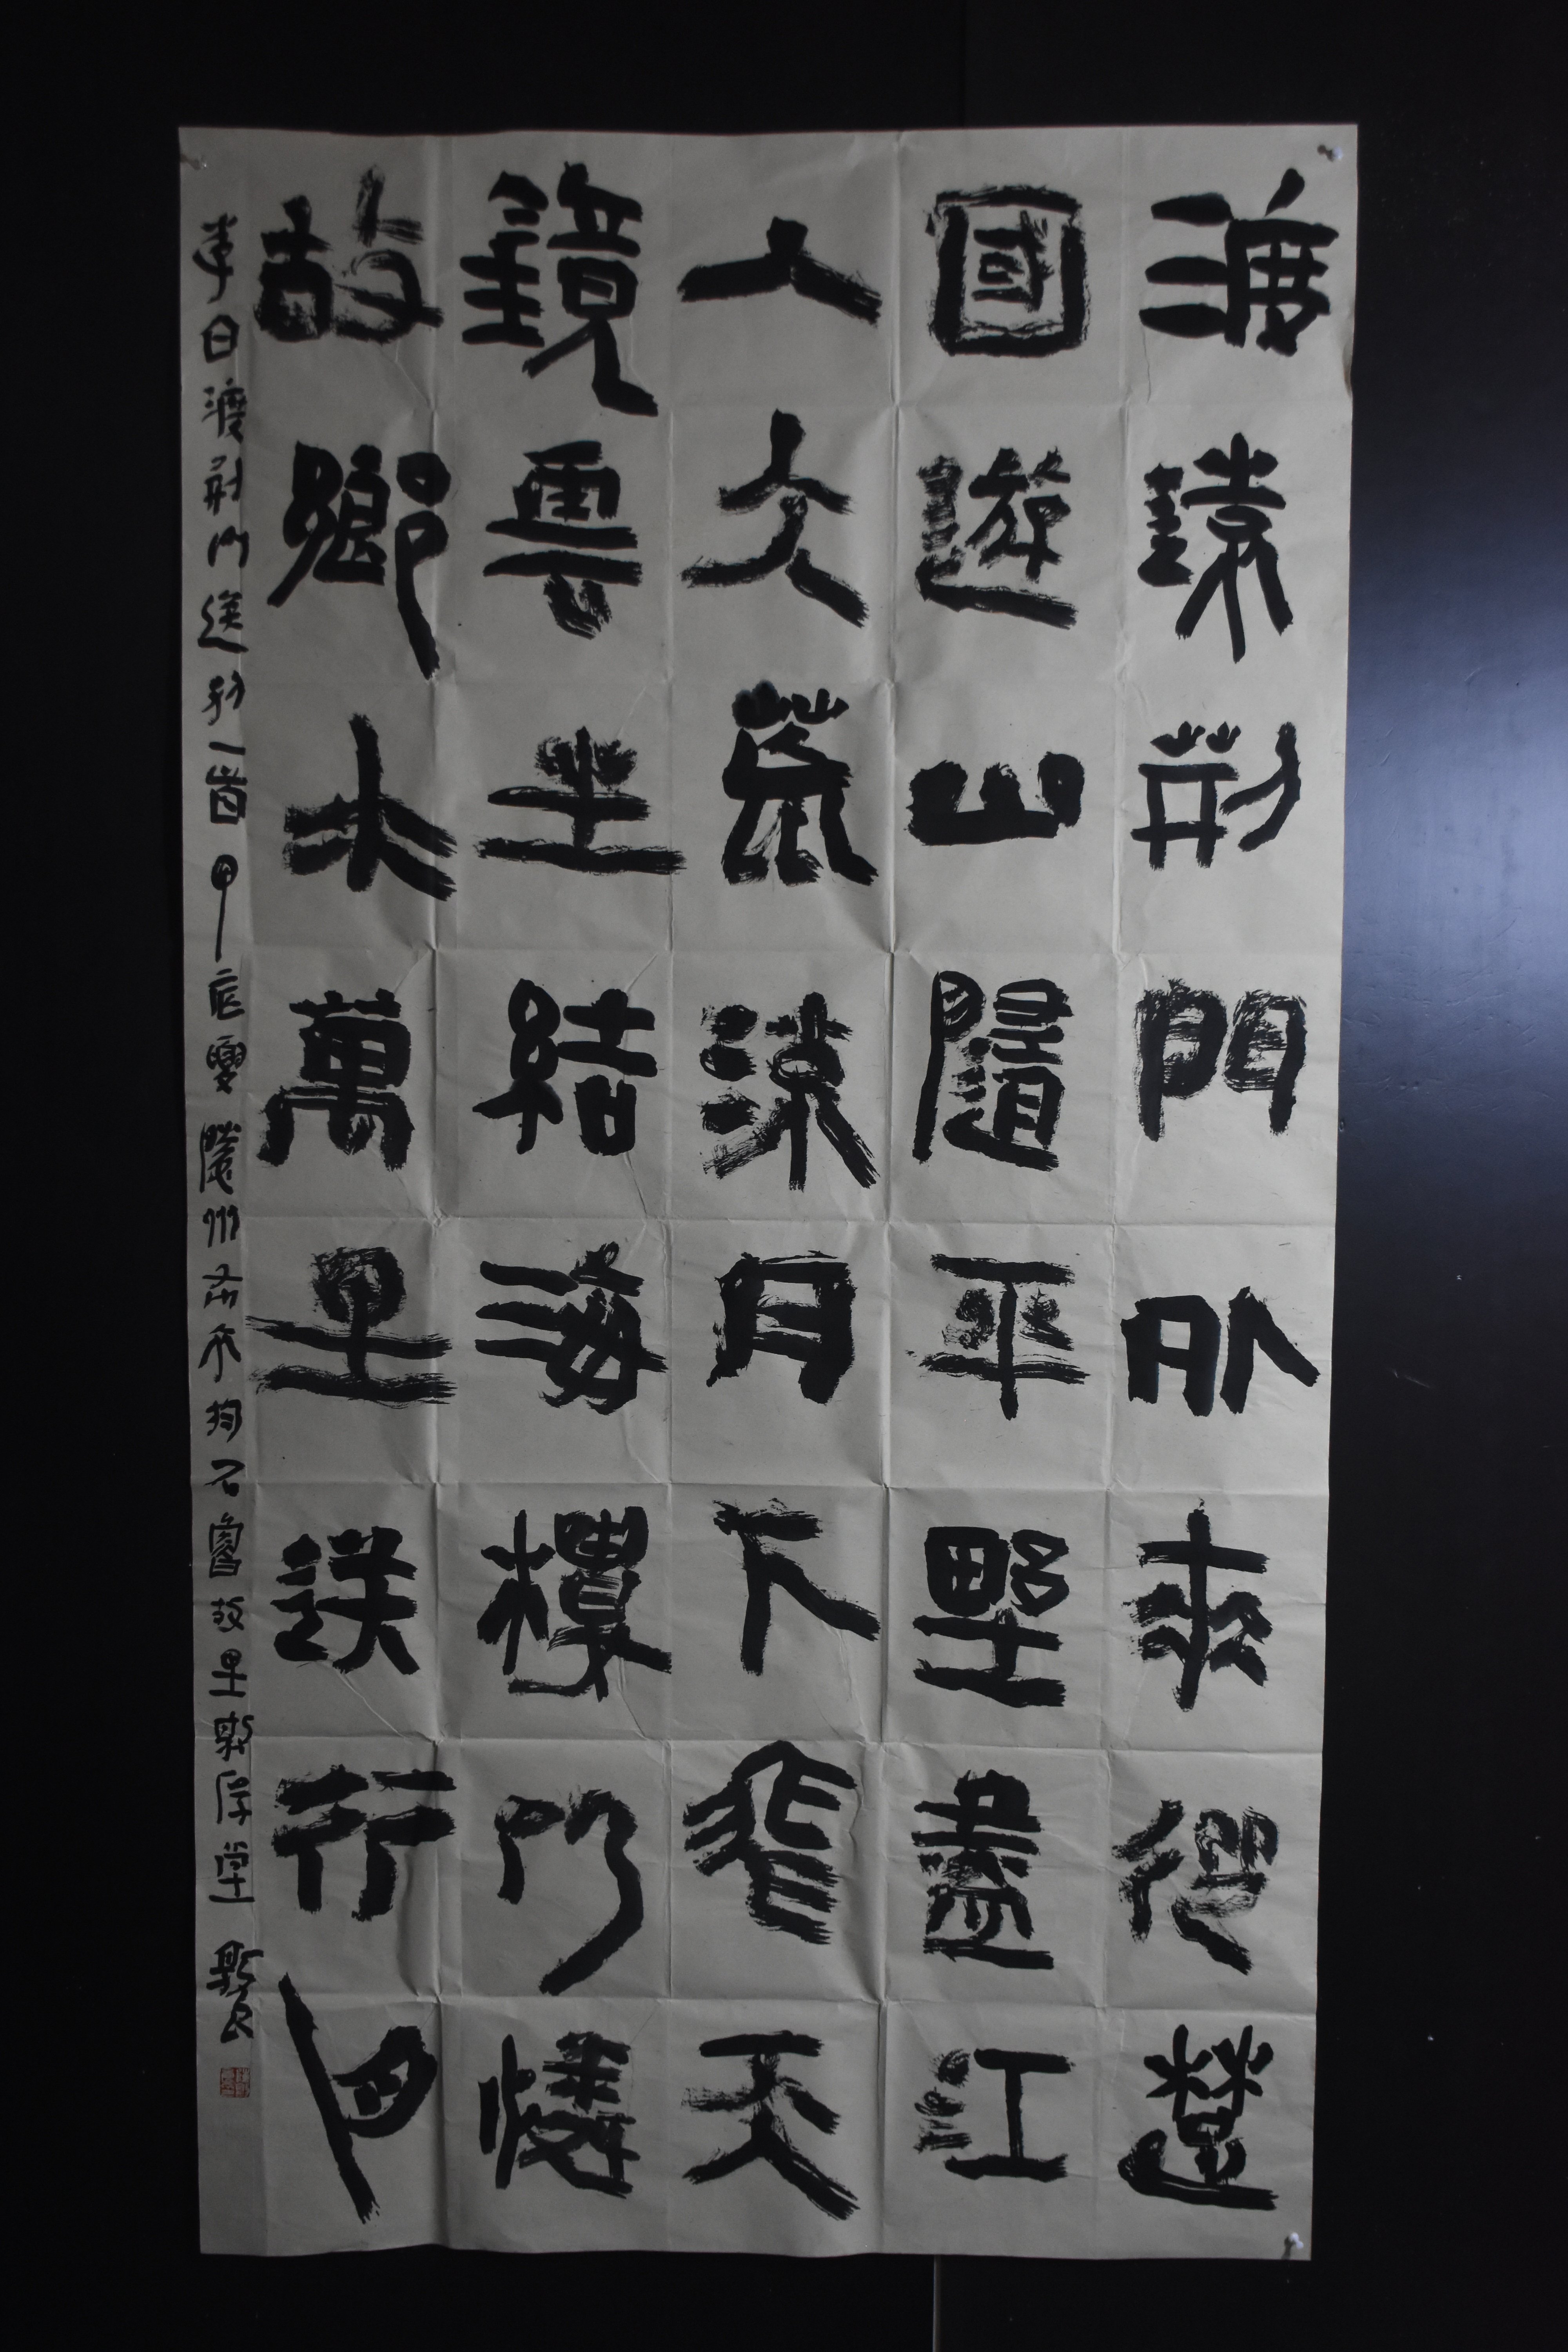 渡遠荊門外來從楚
國遊山隨平野盡江
入大荒流月下飛天
鏡雲生結海樓仍憐
故鄉水萬里送行舟
李白渡荊門送別一首甲辰夏州布衣於石魯故里堂